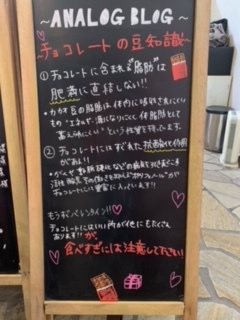 ~ANALOG BLOG~
~チョコレートの豆知識~
①チョコレートに含まれる"脂肪"は
肥満に直結しない!!
・カカオ豆の脂肪は体内に吸収されにくい
という性質を持っています。
②チョコレートにはすぐれた抗酸化作用
があり!
・がんや動脈硬化などの病気を引き起こす
活性酸素の働きを抑える"ポリフェノール"が
チョコレートには豊富に入っています!!
もうすぐバレンタイン!!
チョコレートにはいい所がイモにもたくさん
あります!!が、
食べすぎには注意して下さい!